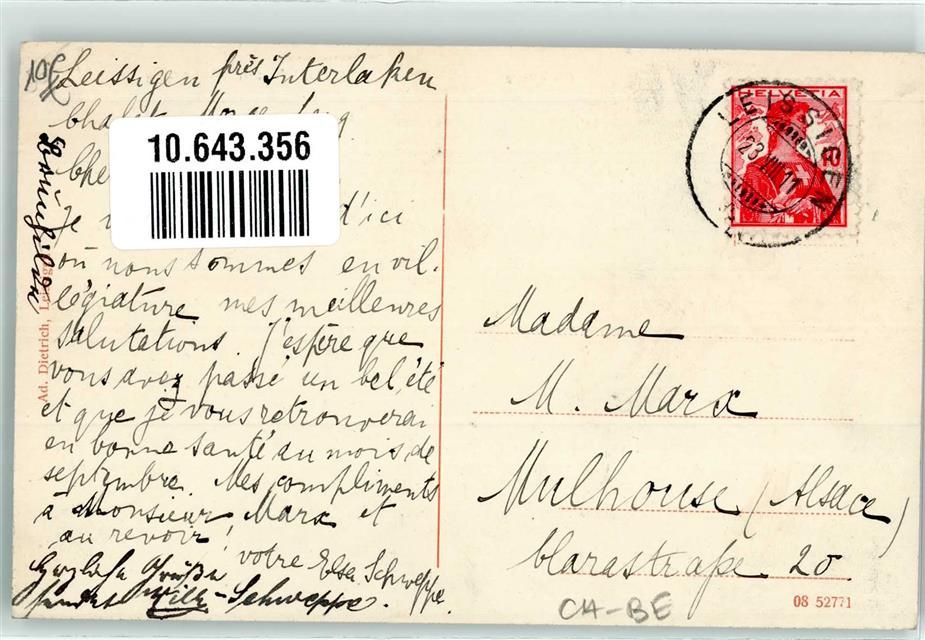 Leissigen près Interlaken
Chalet
Che
Je d'ici
où nous sommes en vil-
légiature mes meilleures
salutations. J'espère que
vous avez passé un bel été
et que je vous retrouverai
en bonne santé au mois de
septembre. Mes compliments
à Monsieur Marx et
au revoir!
votre Elsa Schweppe.
Herzliche Grüße
sendet Willy Schweppe.
10.643.356
Ad. Dietrich,
HELVETIA
LEISSIGEN
23.VIII.11
Madame
M. Marx
Mulhouse (Alsace)
Clarastraße 20
08 52771
CH-BE